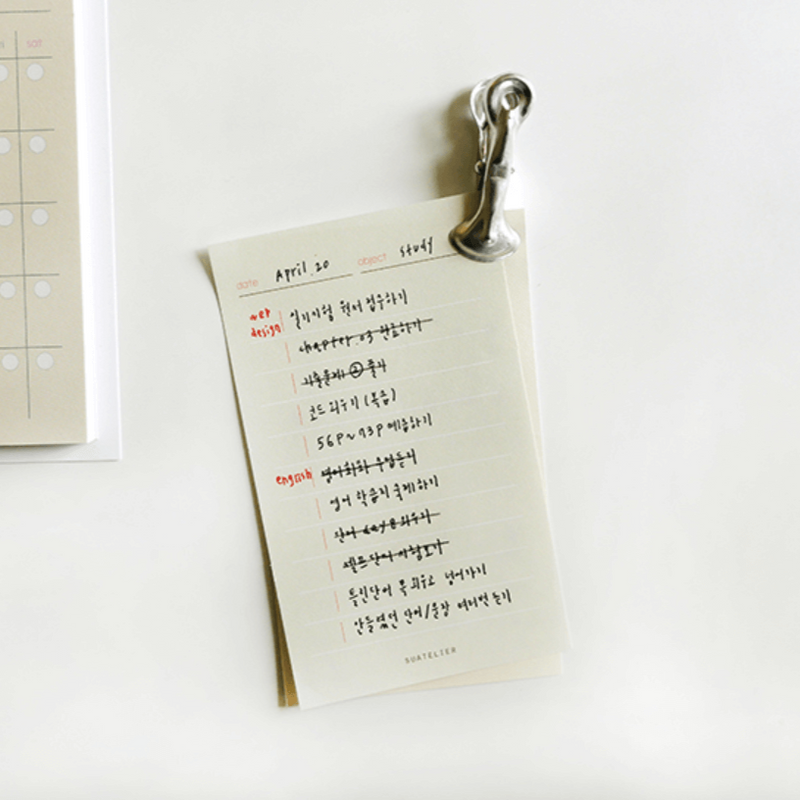 sat
date April. 20 object study
web design 필기시험 원서접수하기
chapter.03 완료하기
기출문제 ② 풀기
코드 외우기 (복습)
56P~73P 예습하기
english 영어회화 수업듣기
영어 학습지 숙제하기
단어 day8 외우기
셀프 단어 시험보기
틀린단어 꼭 외우고 넘어가기
안들렸던 단어/문장 여러번 듣기
SUATELIER